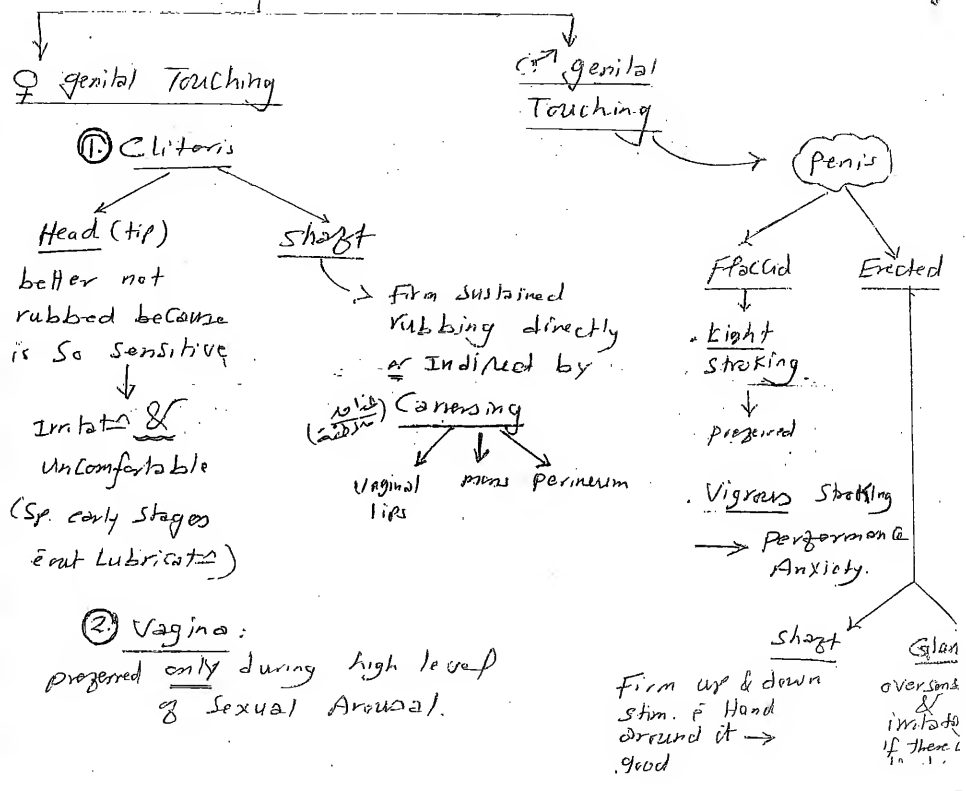 ♀ genital Touching
1. Clitoris
Head (tip)
better not
rubbed because
is so sensitive
Irritat⁼ &
Uncomfortable
(Sp. early stages
ē out Lubricat⁼)
Shaft
Firm sustained
rubbing directly
or Indirect by
Carressing
Vaginal
lips
mons
perineum
2. Vagina:
preferred only during high level
of Sexual Arousal.
♂ genital
Touching
Penis
Flaccid
. Light
stroking.
preferred
. Vigrous Stroking
→ performance
Anxiety.
Erected
Shaft
Firm up & down
stim. ē Hand
around it →
good
Glan
oversens
&
irritat
if there